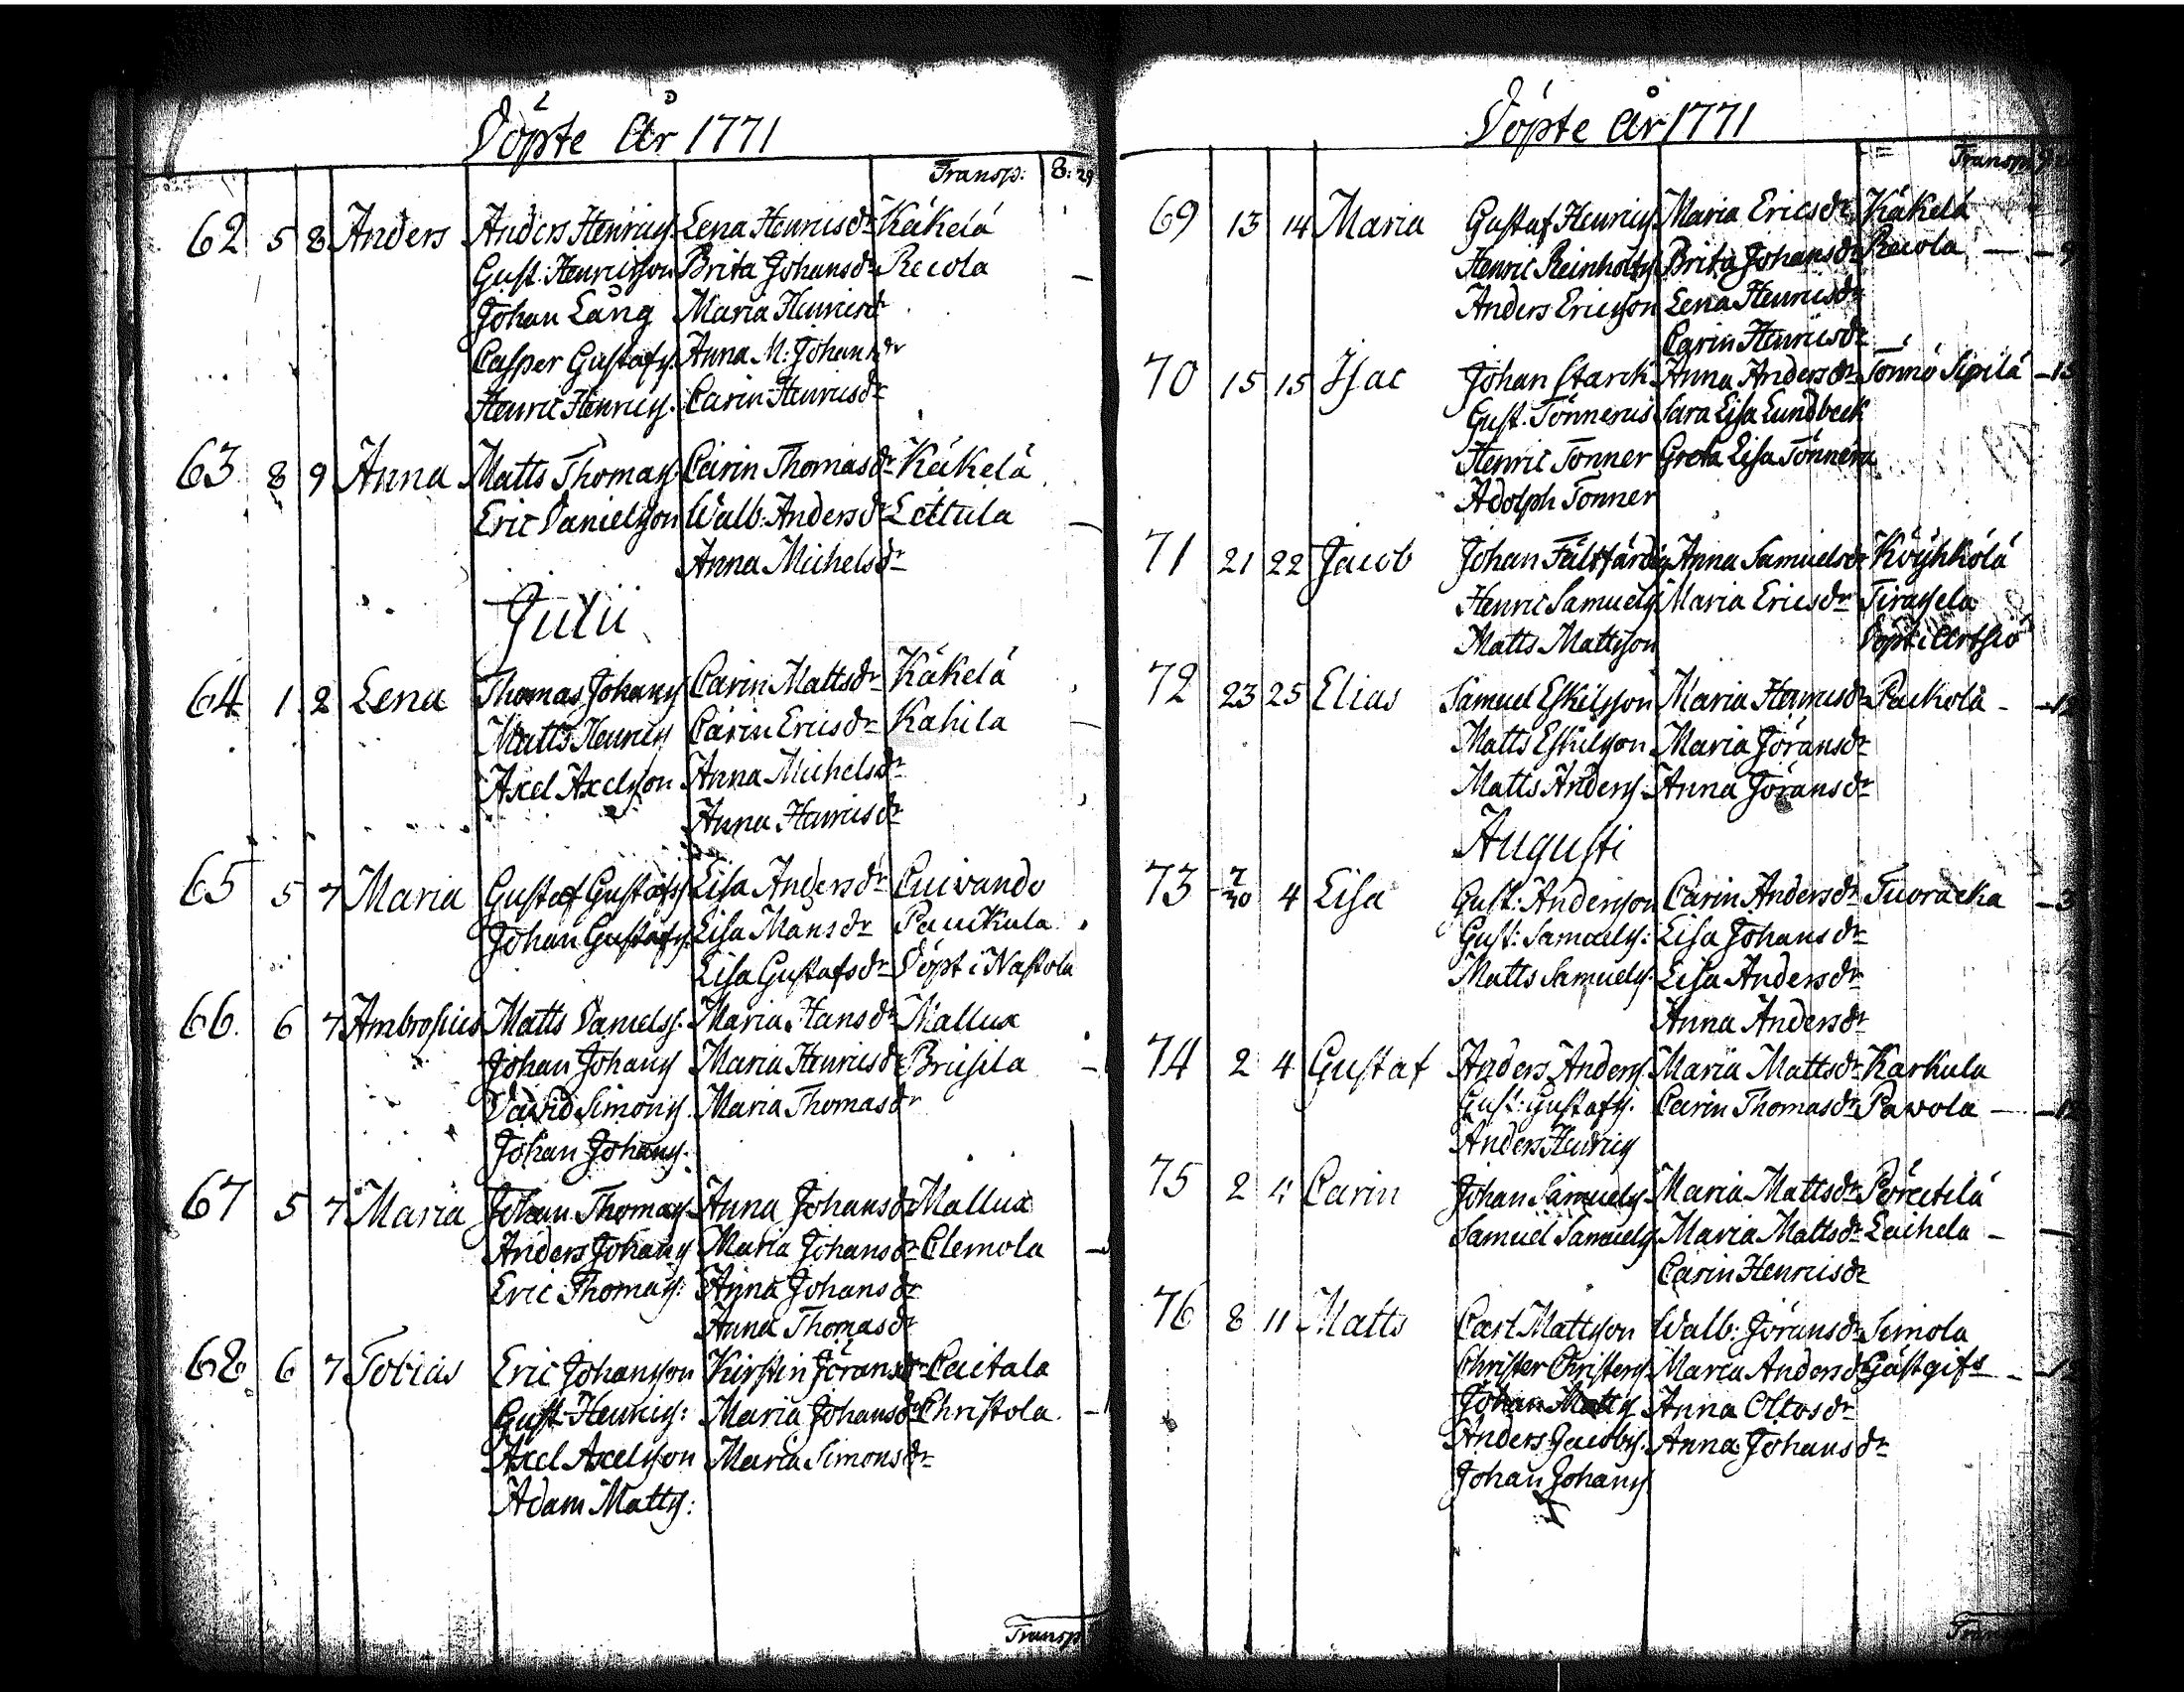 Döpte År 1771
Transp: 8: 29
62 5 8 Anders Anders Henrics. Lena Henricsdr Käkelä
Gust. Henricsson Brita Johansdr Recola
Johan Lång Maria Henricsdr
Casper Gustafs. Anna M: Johansdr
Henric Henrics. Carin Henricsdr
63 8 9 Anna Matts Thomas. Carin Thomasdr Käkelä
Eric Danielsson Walb: Andersdr Lettula
Anna Michelsdr
Julii
64 1 2 Lena Thomas Johans Carin Mattsdr Käkelä
Matts Henrics Carin Ericsdr Kahila
Axel Axelsson Anna Michelsdr
Anna Henricsdr
65 5 7 Maria Gustaf Gustafss Lisa Andersdr Cuivando
Johan Gustafs. Lisa Mansdr Paukula
Lisa Gustafsdr Döpt i Nastola
66 6 7 Ambrosius Matts Daniels. Maria Hansdr Mallux
Johan Johans Maria Henricsdr Brusila
David Simons. Maria Thomasdr
Johan Johans.
67 5 7 Maria Johan Thomas. Anna Johansdr Mallux
Anders Johans Maria Johansdr Clemola
Eric Thomas: Anna Johansdr
Anna Thomasdr
68 6 7 Tobias Eric Johansson Kirstin Jöransdr Caitala
Gust. Henrics: Maria Johansdr Christola
Axel Axelsson Maria Simonsdr
Adam Matts:
Transp
Döpte År 1771
Transp
69 13 14 Maria Gustaf Henrics. Maria Ericsdr Käkelä
Henric Reinholts Brita Johansdr Recola — 9
Anders Ericsson Lena Henricsdr
Carin Henricsdr
70 15 15 Isac Johan Starck Anna Andersdr Tönnö Sipilä
Gust. Tönnerus Sara Lisa Lundbeck
Henric Tönner Greta Lisa Tönnera
Adolph Tönner
71 21 22 Jacob Johan Fältfärdig Anna Samuelsdr Köyhkölä
Henric Samuels. Maria Ericsdr Tirasela
Matts Mattsson Döpt i Artsiö
72 23 25 Elias Samuel Eskilsson Maria Henricsdr Packola
Matts Eskilsson Maria Jöransdr
Matts Anders. Anna Jöransdr
Augusti
73 7/30 4 Lisa Gust: Andersson Carin Andersdr Tuoracka
Gust: Samuels: Lisa Johansdr
Matts Samuels. Lisa Andersdr
Anna Andersdr
74 2 4 Gustaf Anders Anders. Maria Mattsdr Karkula
Gust: Gustafs. Carin Thomasdr Pavola
Anders Henrics
75 2 4 Carin Johan Samuels. Maria Mattsdr Pöretilä
Samuel Samuels. Maria Mattsdr Laihela
Carin Henricsdr
76 8 11 Matts Carl Mattsson Walb: Jöransdr Simola
Christer Christers. Maria Andersdr Gästgifs
Johan Matts Anna Ottosdr
Anders Jacobs. Anna Johansdr
Johan Johans